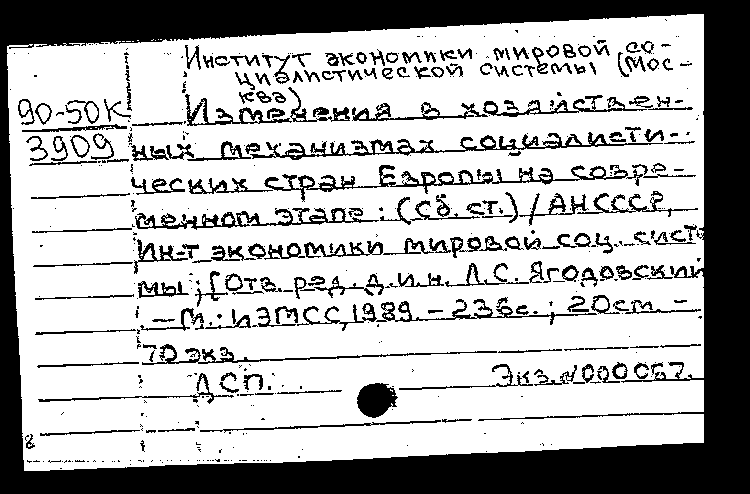 Институт экономики мировой со-
циалистической системы (Мос-
ква)
90-50К
3909
Изменения в хозяйствен-
ных механизмах социалисти-
ческих стран Европы на совре-
менном этапе : (Сб. ст.) / АН СССР,
Ин-т экономики мировой соц. систе
мы ; [Отв. ред. д.и.н. Л.С. Ягодовский
. – М. : ИЭМСС, 1989. – 236с. ; 20см. –
70 экз.
ДСП. Экз. №000057.
8